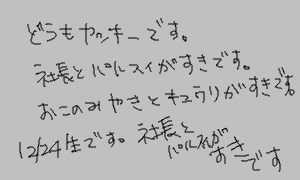 どうもヤンキーです。
社長とパルスィがすきです。
おこのみやきとキュウリがすきです。
12/24生です。社長と
パルスィが
すきです